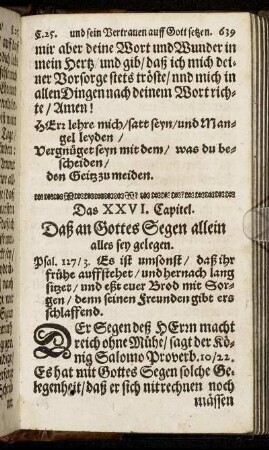 C.25. und sein Vertrauen auff Gott setzen. 639
mir aber deine Wort und Wunder in
mein Hertz/ und gib/ daß ich mich dei-
ner Vorsorge stets tröste/ und mich in
allen Dingen nach deinem Wort rich-
te/ Amen!
HErr lehre mich/ satt seyn/ und Man-
gel leyden/
Vergnüget seyn mit dem/ was du be-
scheiden/
den Geitz zu meiden.
Das XXVI. Capitel.
Daß an Gottes Segen allein
alles sey gelegen.
Psal. 127/3. Es ist umsonst/ daß ihr
frühe auffstehet/ und hernach lang
sitzet/ und eßt euer Brod mit Sor-
gen/ denn seinen Freunden gibt ers
schlaffend.
DEr Segen deß HErrn macht
reich ohne Mühe/ sagt der Kö-
nig Salomo Proverb. 10/22.
Es hat mit Gottes Segen solche Ge-
legenheit/ daß er sich nit rechnen noch
müssen